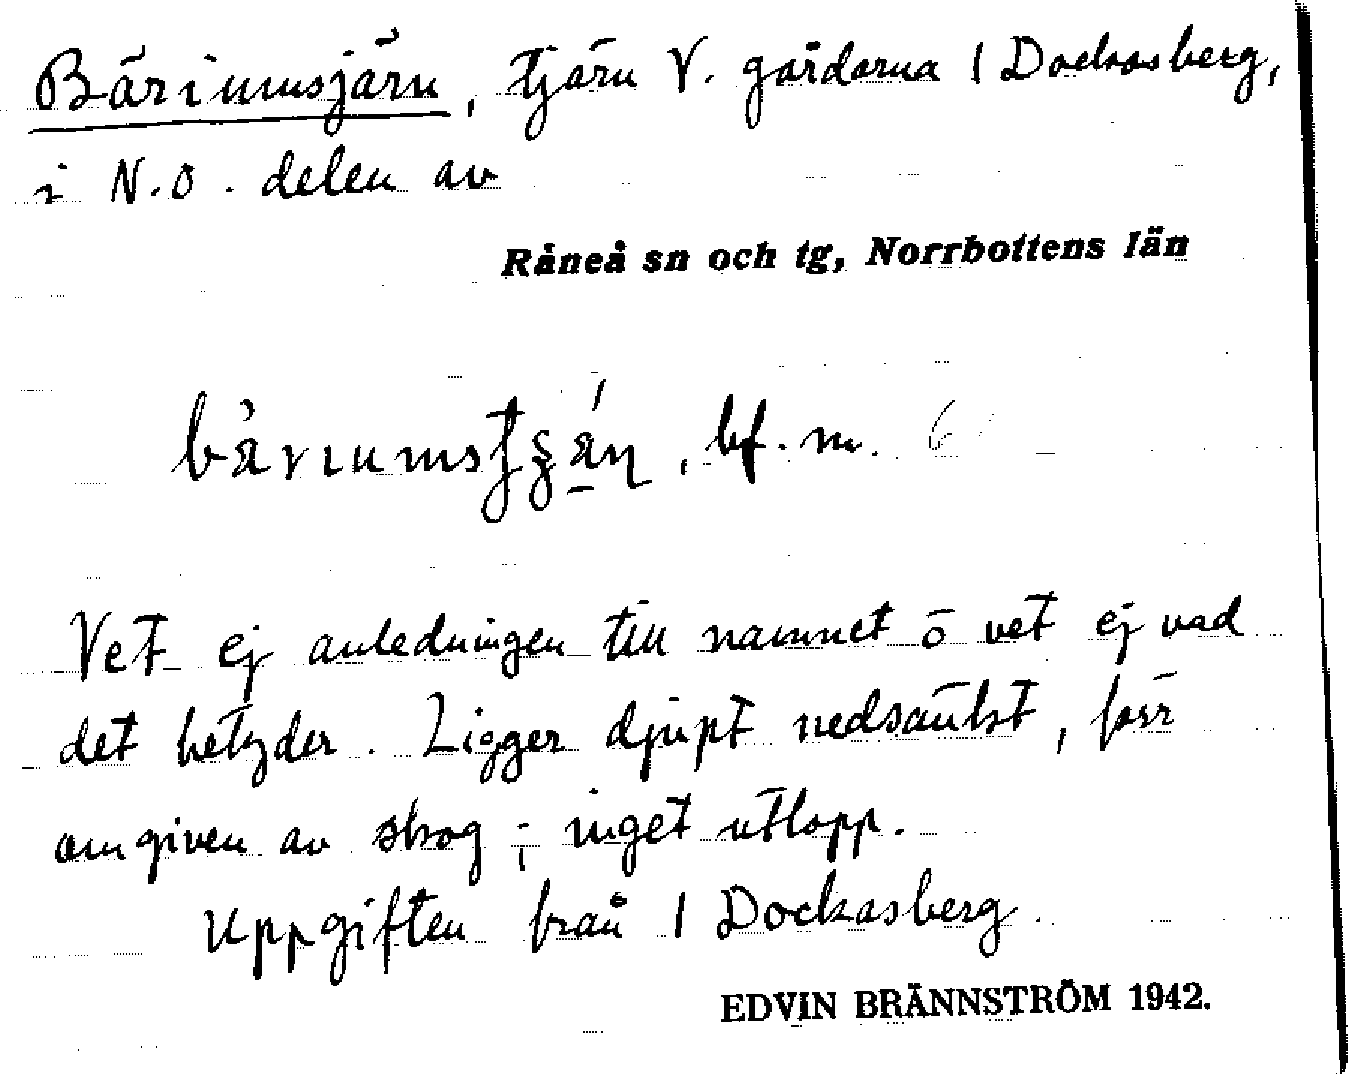 Bäriumsjärn, tjärn V. gårdarna 1 Dockasberg,
i N.O. delen av
Råneå sn och tg, Norrbottens län
bf. m.
Vet ej anledningen till namnet o vet ej vad
det betyder. Ligger djupt nedsänkt, förr
omgiven av skog; inget utlopp.
Uppgiften från 1 Dockasberg.
EDVIN BRÄNNSTRÖM 1942.